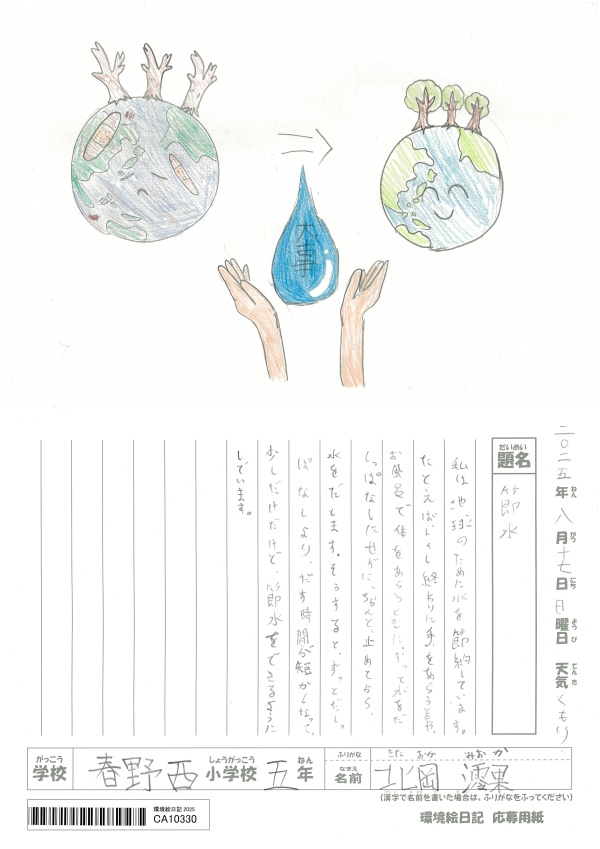 大事
二〇二五年八月十七日日曜日 天気くもり
ねん がつ にち ようび てんき
だいめい
題名
節水
私は地球のために水を節約しています。
たとえば、トイレ終わりに手をあらうときや、
お風呂で体をあらうときに、ずっと水をだ
しっぱなしにせずに、ちゃんと、止めてから、
水をだします。そうすると、ずっとだしっ
ぱなしより、だす時間が短かくなって、
少しだけだけど、節水をできるように
しています。
がっこう しょうがっこう ねん
学校 春野西小学校五年
ふりがな きた おか みおか
なまえ
名前 北岡 澪果
(漢字で名前を書いた場合は、ふりがなをふってください)
環境絵日記 2025
CA10330
環境絵日記 応募用紙